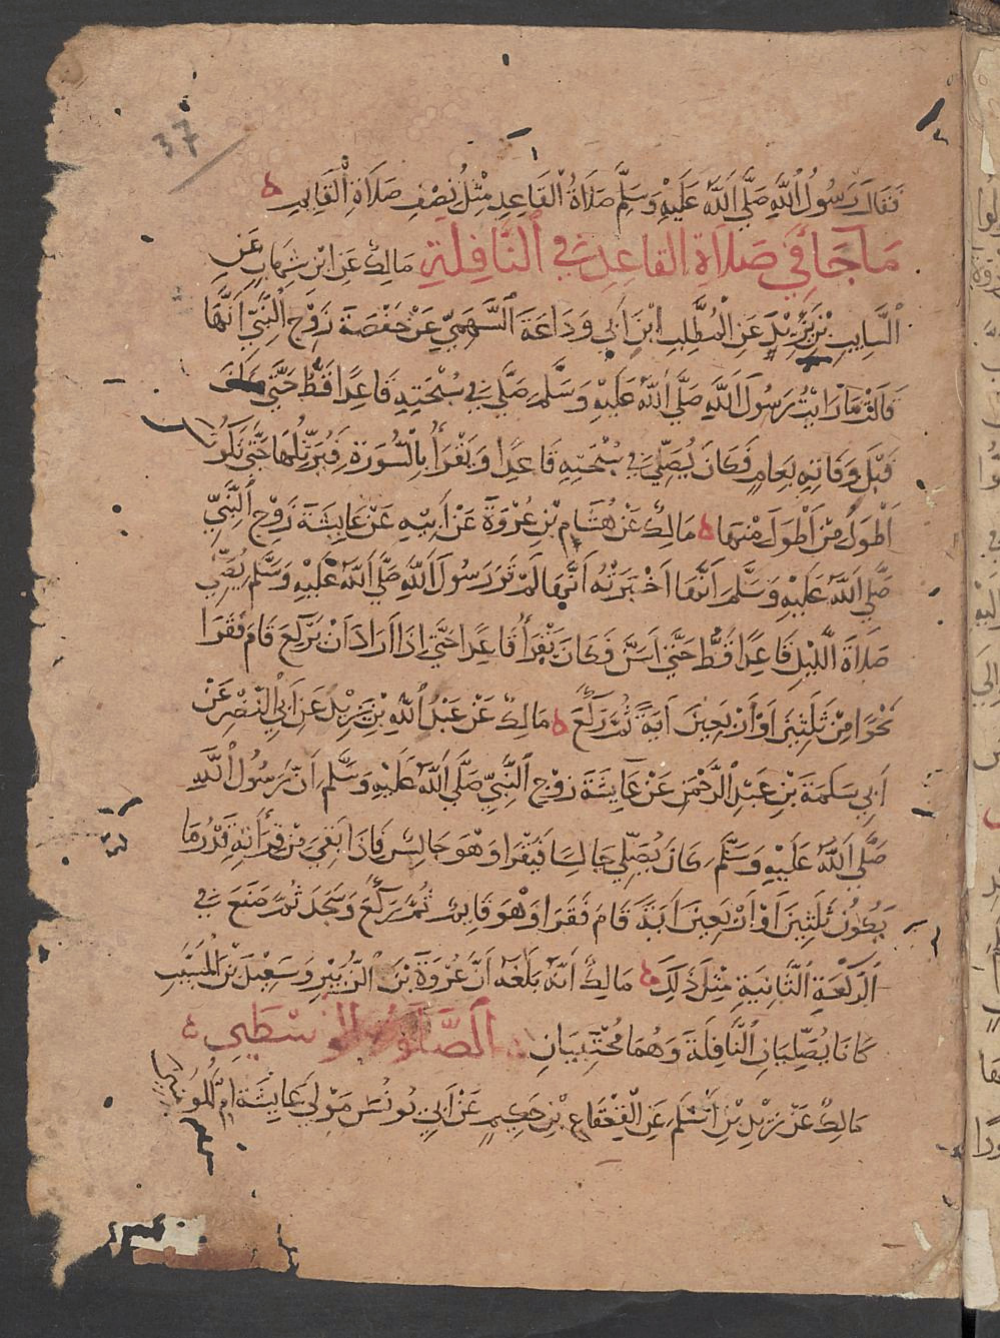 37
فَقَالَ رَسُولُ اللَّهِ صَلَّى اللَّهُ عَلَيْهِ وَسَلَّمَ صَلَاةُ الْقَاعِدِ مِثْلُ نِصْفِ صَلَاةِ الْقَايِمِ
مَا جَا فِي صَلَاةِ القاعِدِ فِي النَّافِلَةِ مَالِكٌ عَنِ ابْنِ شِهَابٍ عَنِ
السَّايِبِ بْنِ يَزِيدَ عَنِ الْمُطَّلِبِ ابْنِ أَبِي وَدَاعَةَ السَّهْمِيِّ عَنْ حَفْصَةَ زَوْجِ النَّبِيِّ أَنَّهَا
قَالَتْ مَا رَايْتُ رَسُولَ اللَّهِ صَلَّى اللَّهُ عَلَيْهِ وَسَلَّمَ صَلَّى فِي سُبْحَتِهِ قَاعِدًا قَطُّ حَتَّى كَانَ
قَبْلَ وَفَاتِهِ بِعَامٍ فَكَانَ يُصَلِّي فِي سُبْحَتِهِ قَاعِدًا وَيَقْرَأُ بِالسُّورَةِ فَيُرَتِّلُهَا حَتَّى تَكُونَ
أَطْوَلَ مِنْ أَطْوَلَ مِنْهَا مَالِكٌ عَنْ هِشَامِ بْنِ عُرْوَةَ عَنْ أَبِيهِ عَنْ عَايِشَةَ زَوْجِ النَّبِيِّ
صَلَّى اللَّهُ عَلَيْهِ وَسَلَّمَ أَنَّهَا أَخْبَرَتْهُ أَنَّهَا لَمْ تَرَ رَسُولَ اللَّهِ صَلَّى اللَّهُ عَلَيْهِ وَسَلَّمَ يُصَلِّي
صَلَاةَ اللَّيْلِ قَاعِدًا قَطُّ حَتَّى أَسَنَّ فَكَانَ يَقْرَأُ قَاعِدًا حَتَّى إِذَا أَرَادَ أَنْ يَرْكَعَ قَامَ فَقَرَا
نَحْوًا مِنْ ثَلَثِينَ أَوْ أَرْبَعِينَ آيَةً ثُمَّ رَكَعَ مَالِكٌ عَنْ عَبْدِ اللَّهِ بْنِ يَزِيدَ عَنْ أَبِي النَّضْرِ عَنْ
أَبِي سَلَمَةَ بْنِ عَبْدِ الرَّحْمَنِ عَنْ عَايِشَةَ زَوْجِ النَّبِيِّ صَلَّى اللَّهُ عَلَيْهِ وَسَلَّمَ أَنَّ رَسُولَ اللَّهِ
صَلَّى اللَّهُ عَلَيْهِ وَسَلَّمَ كَانَ يُصَلِّي جَالِسًا فَيَقْرَا وَهْوَ جَالِسٌ فَإِذَا بَقِيَ مِنْ قِرَاءَتِهِ قَدْرُ مَا
يَكُونُ ثَلَثِينَ أَوْ أَرْبَعِينَ آيَةً قَامَ فَقَرَا وَهْوَ قَايِمٌ ثُمَّ رَكَعَ وَسَجَدَ ثُمَّ صَنَعَ فِي
الرَّكْعَةِ الثَّانِيَةِ مِثْلَ ذَلِكَ مَالِكٌ أَنَّهُ بَلَغَهُ أَنَّ عُرْوَةَ بْنَ الزُّبَيْرِ وَسَعِيدَ بْنَ الْمُسَيَّبِ
كَانَا يُصَلِّيَانِ النَّافِلَةَ وَهُمَا مُحْتَبِيَانِ الصَّلَوةُ الْوُسْطَى
مَالِكٌ عَنْ زَيْدِ بْنِ أَسْلَمَ عَنِ الْقَعْقَاعِ بْنِ حَكِيمٍ عَنْ أَبِي يُونُسَ مَوْلَى عَايِشَةَ أُمِّ الْمُو